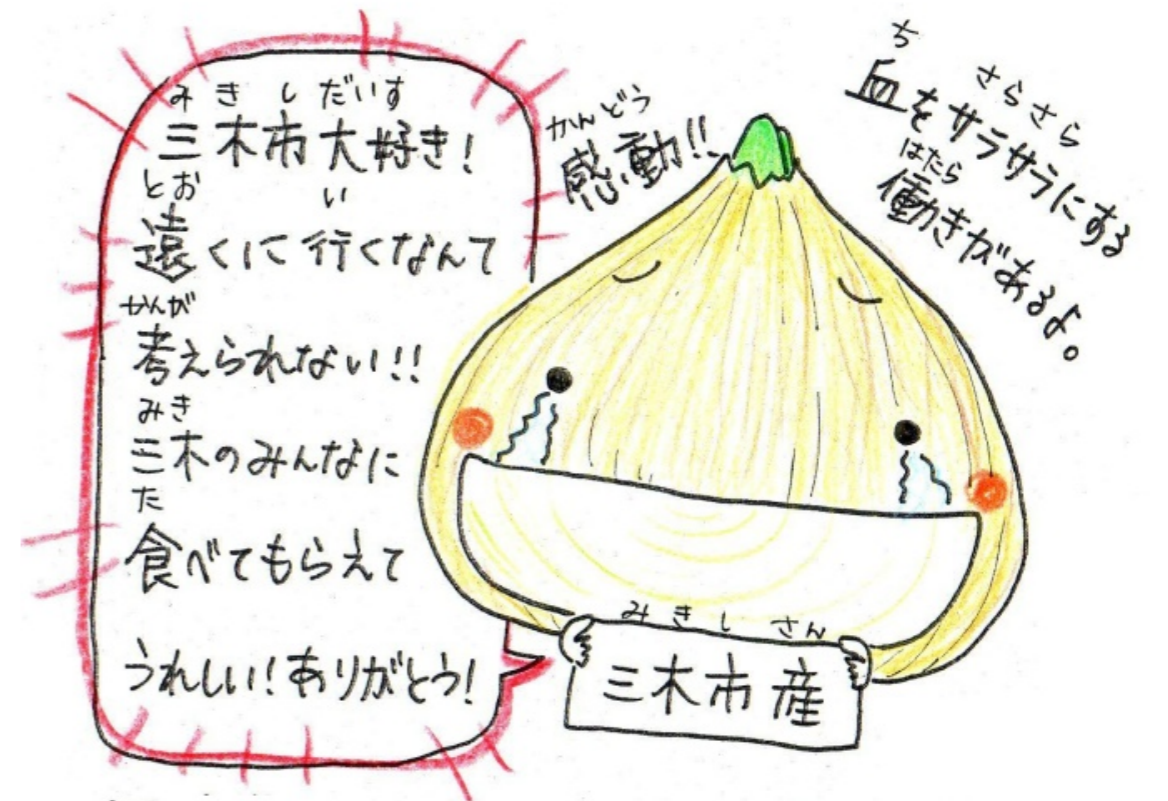 みきしだいす
三木市大好き!
とおい
遠くに行くなんて
かんが
考えられない!!
みき
三木のみんなに
た
食べてもらえて
うれしい!ありがとう!
かんどう
感動!!
ち さらさら
血をサラサラにする
はたら
働きがあるよ。
みきしさん
三木市産